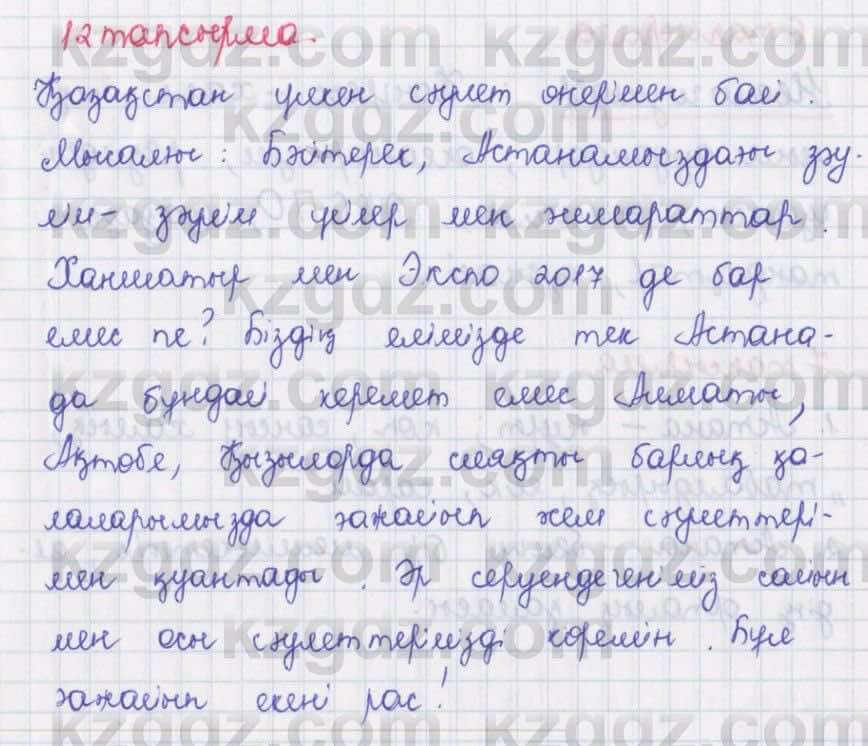 12 тапсырма.
Қазақстан үлкен сәулет өнерімен бай.
Мысалы: Бәйтерек, Астанамыздағы зәу-
лім-зәулім үйлер мен ғимараттар.
Ханшатыр мен Экспо 2017 де бар
емес пе? Біздің елімізде тек Астана-
да бұндай керемет емес Алматы,
Ақтөбе, Қызылорда сияқты барлық қа-
лаларымызда ғажайып әсем сәулеттері-
мен қуантады. Әр серуендегеніміз сайын
мен осы сәулеттерімізді көремін. Бұл
ғажайып екені рас!
kzgdz.com